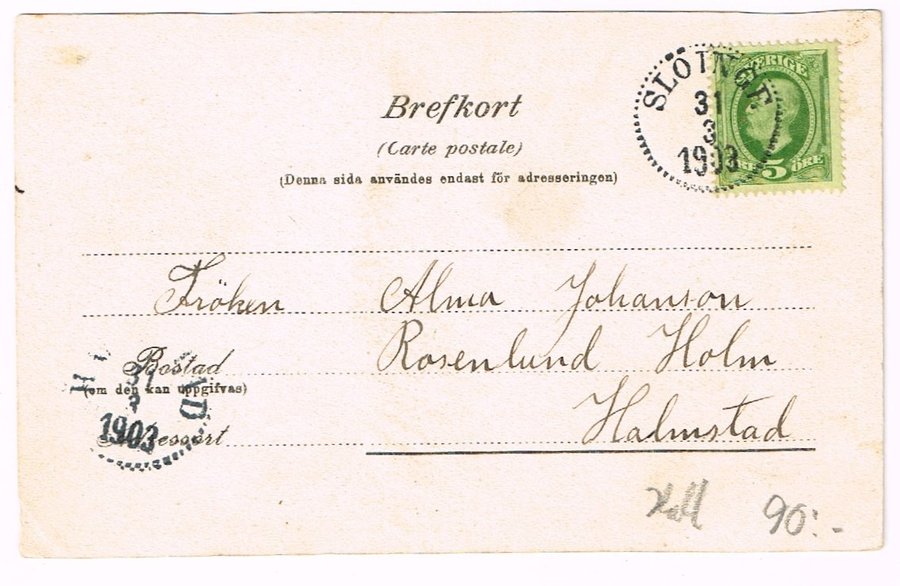 Brefkort
(Carte postale)
(Denna sida användes endast för adresseringen)
SLÖINGE
31
3
1903
SVERIGE
5 ÖRE
Fröken Alma Johanson
Rosenlund Holm
Halmstad
Bostad
(om den kan uppgifvas)
Adressort
H AD
31
3
1903
90:-